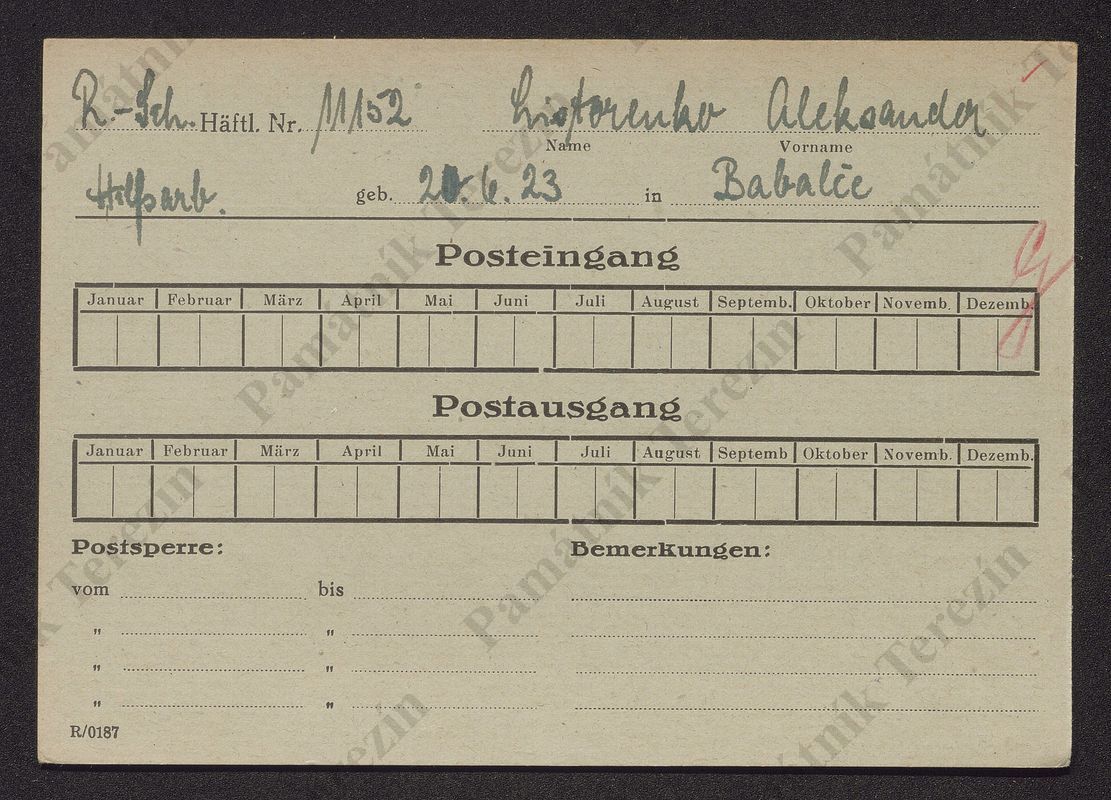 R.-Sch. Häftl. Nr. 11152 Listorenko Aleksander
Name Vorname
Hilfsarb. geb. 20. 6. 23 in Babalče
Posteingang
Januar Februar März April Mai Juni Juli August Septemb. Oktober Novemb. Dezemb.
Postausgang
Januar Februar März April Mai Juni Juli August Septemb Oktober Novemb. Dezemb.
Postsperre: Bemerkungen:
vom bis
" "
" "
" "
R/0187
Památník Terezín